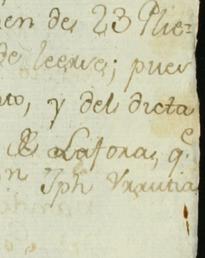 en de 23 Plie=
de leerse; pues
to, y del dicta
& Lafora, q.e
n Jph Urrutia